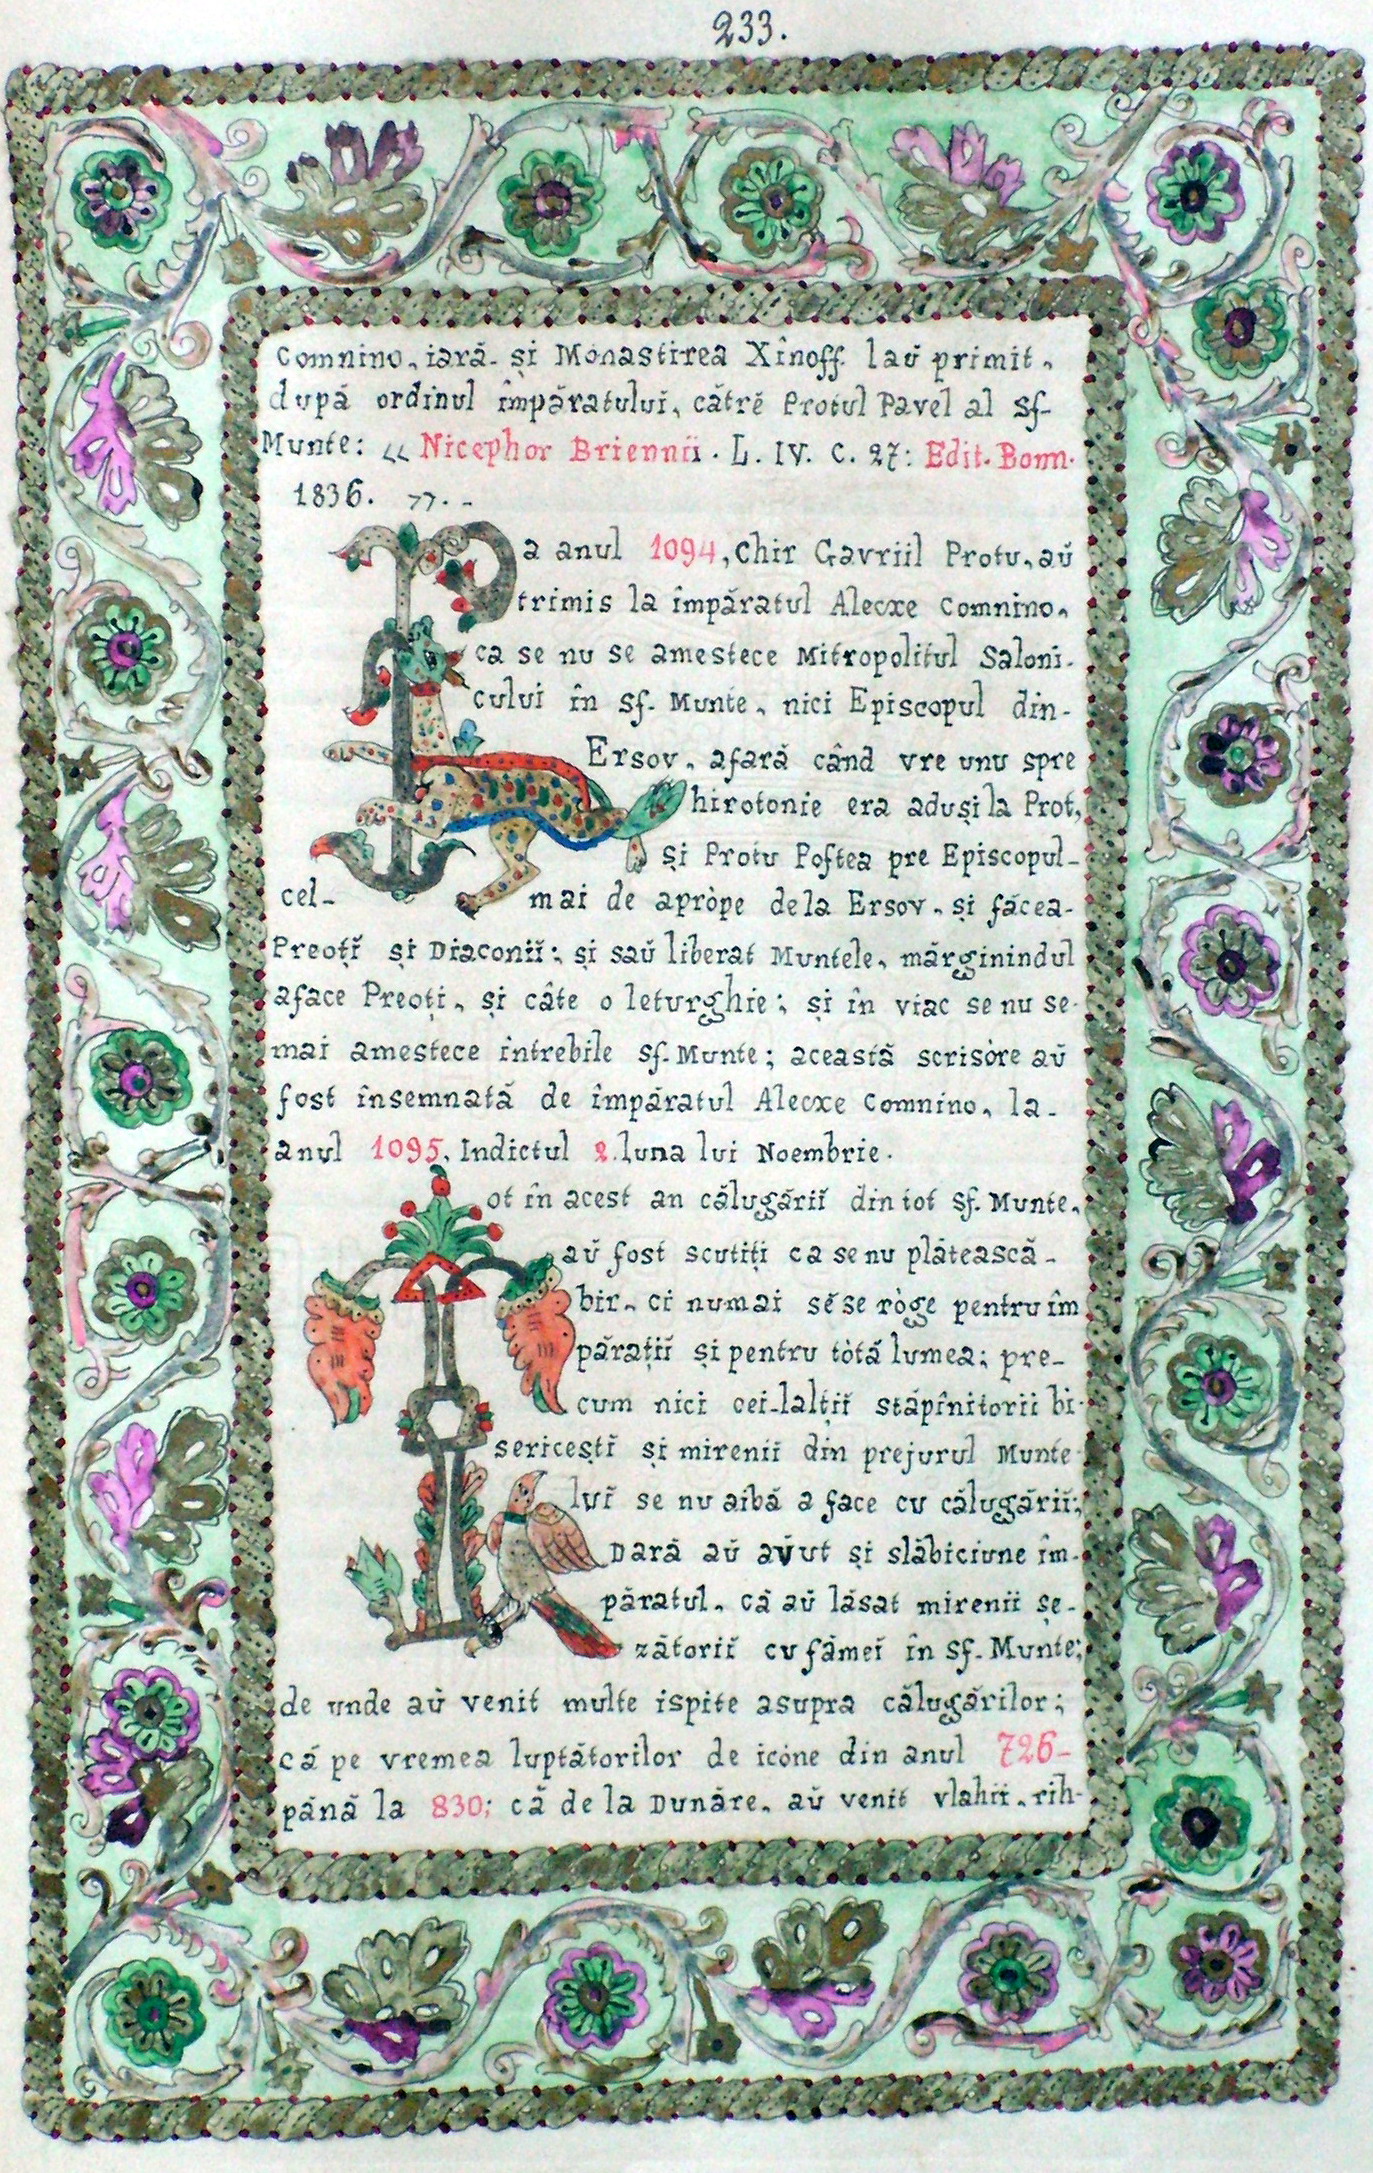 233.
Comnino, iară și Monastirea Xînoff. laŭ primit,
după ordinul împăratului, cătrĕ Protul Pavel al Sf-
Munte: « Nicephor Briennii. L. IV. C. 27: Edit. Bonn.
1836. ».-
La anul 1094, Chir Gavriil Protu, aŭ
trimis la împăratul Alecxe Comnino,
ca se nu se amestece Mitropolitul Saloni-
cului în Sf. Munte, nici Episcopul din-
Ersov, afară când vre unu spre
hirotonie era aduși la Prot,
și Protu Poftea pre Episcopul-
cel- mai de apròpe dela Ersov, și făcea-
Preoțĭ și Diaconiĭ; și saŭ liberat Muntele, mărginindul
aface Preoți, și câte o leturghie; și în viac se nu se-
mai amestece întrebile Sf. Munte; această scrisòre aŭ
fost însemnată de împăratul Alecxe Comnino, la-
anul 1095, Indictul 2. luna lui Noembrie.
Tot în acest an călugăriĭ din tot Sf. Munte,
aŭ fost scutiți ca se nu plătească-
bir, ci numai sĕ se ròge pentru îm
părațiĭ și pentru tòtă lumea; pre-
cum nici cei-lalțiĭ stăpînitorii bi-
sericeștĭ și mirenii din prejurul Munte-
luĭ se nu aibă a face cu călugăriĭ;
Dară aŭ avut și slăbiciune îm-
păratul, că aŭ lăsat mirenii șe-
zătoriĭ cu fămeĭ în Sf. Munte;
de unde aŭ venit multe ispite asupra călugărilor;
că pe vremea luptătorilor de icòne din anul 726-
până la 830; că de la Dunăre, aŭ venit vlahii, rih-